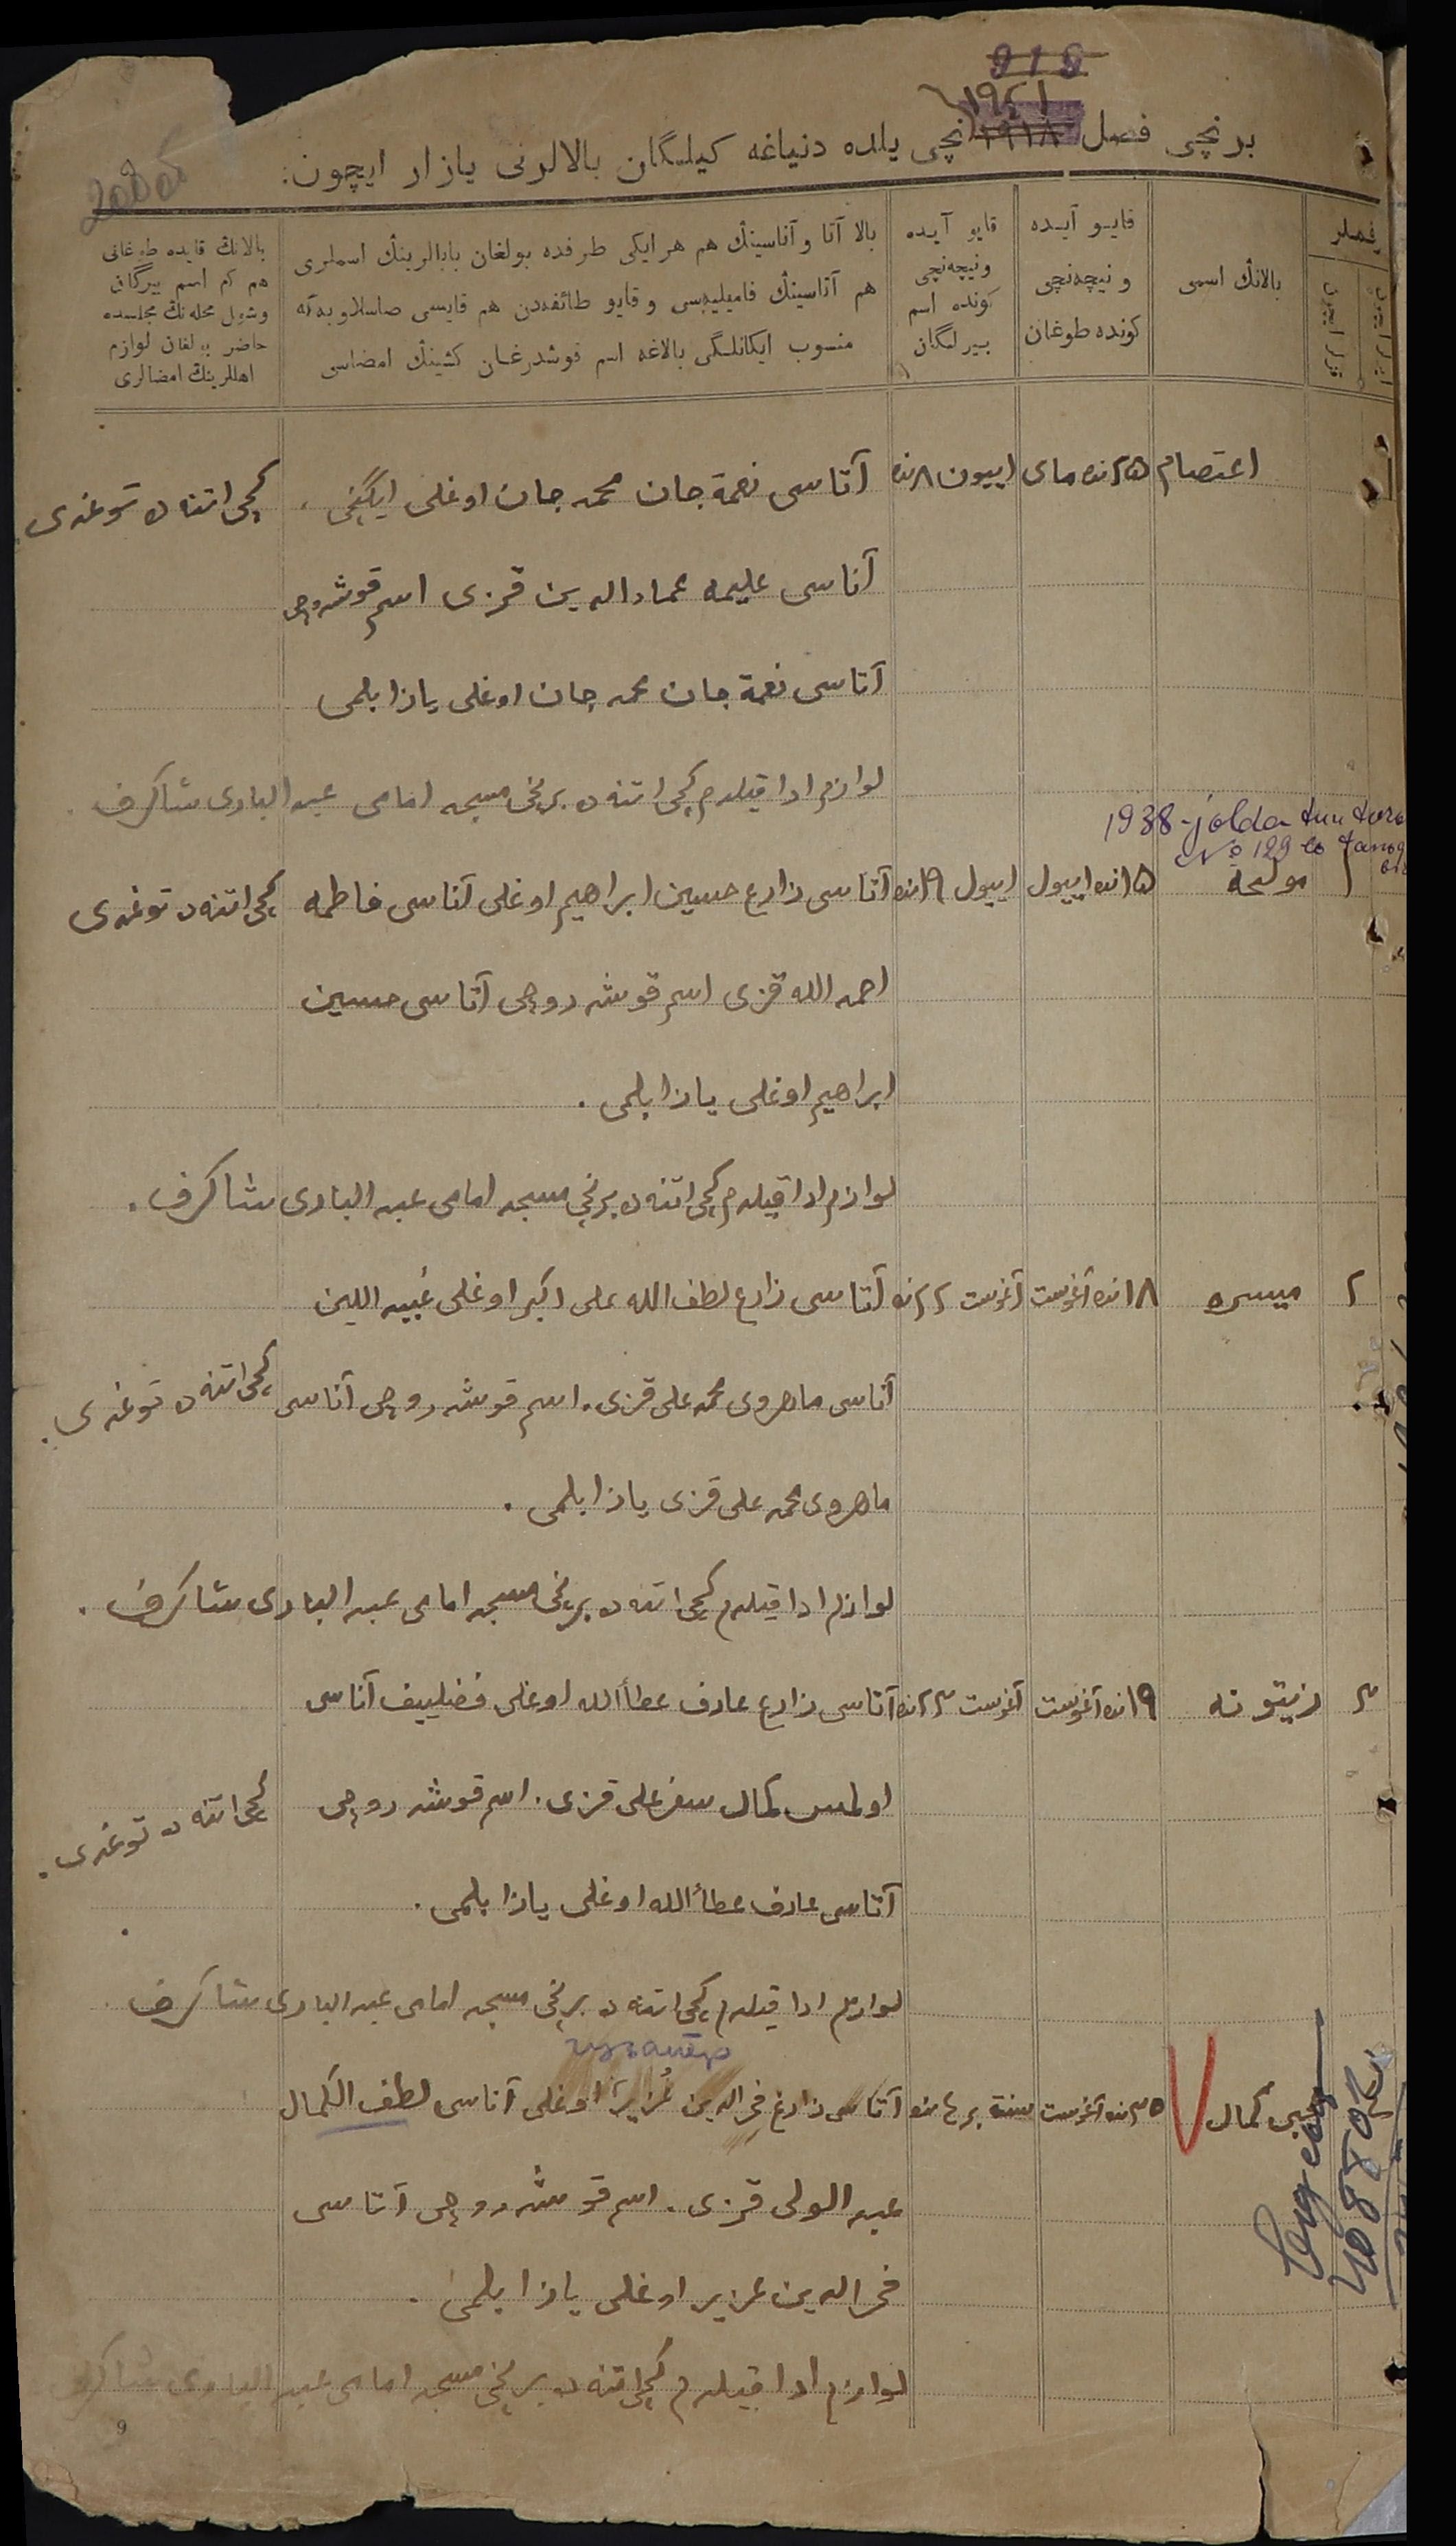 918
١٩٢١
برنچی فصل ١٩١٨نچی یلده دنیاغه کیلگان بالالرنی یازار ایچون:
فصلر
بالانڭ اسمی
قایو آیده
و نیچه‌نچی
کونده طوغان
قایو آیده
و نیچه‌نچی
کونده اسم
بیرلگان
بالا آتا و آناسینڭ هم هر ایکی طرفده بولغان بابالرینڭ اسملری
هم آتاسینڭ فامیلیه‌سی و قایو طائفه‌دن هم قایسی صاسلاویه‌گه
منسوب ایکانلگی بالاغه اسم قوشدرغان کشینڭ امضاسی
بالانڭ قایده طوغانی
هم کم اسم بیرگان
وشول محله‌نڭ مجلسده
حاضر بولغان لوازم
اهللرینڭ امضالری
اعتصام
٢٥نده مای
اییون ٨نده
آتاسی نعمة جان محمد جان اوغلی ایگنچی .
کچی اتنه ده توغدی
آناسی علیمه عماد الدین قزی اسم قوشدروچی
آتاسی نعمة جان محمد جان اوغلی یازا بلمی
لوازم ادا قیلدم کچی اتنه ده برنچی مسجد امامی عبد الباری شاکرف .
1938-jolda
№ 129
١
١٥نده اییول
اییول ١٩نده
آتاسی زارع حسین ابراهیم اوغلی آناسی فاطمه
کچی اتنه ده توغدی
احمد الله قزی اسم قوشدروچی آتاسی حسین
ابراهیم اوغلی یازا بلمی .
لوازم ادا قیلدم کچی اتنه ده برنچی مسجد امامی عبد الباری شاکرف .
٢
میسره
١٨نده آغوست
آغوست ٢٢نده
آتاسی زارع لطف الله علی اکبر اوغلی
آناسی ماهروی محمد علی قزی . اسم قوشدروچی آناسی
کچی اتنه ده توغدی .
ماهروی محمد علی قزی یازا بلمی .
لوازم ادا قیلدم کچی اتنه ده برنچی مسجد امامی عبد الباری شاکرف .
٣
زیتونه
١٩نده آغوست
آغوست ٢٣نده
آتاسی زارع عارف عطأالله اوغلی فضلییف آناسی
کمال سفر علی قزی . اسم قوشدروچی
کچی اتنه ده توغدی .
آتاسی عارف عطأالله اوغلی یازا بلمی .
لوازم ادا قیلدم کچی اتنه ده برنچی مسجد امامی عبد الباری شاکرف .
کمال
آغوست
آتاسی زارع فخر الدین عزیر اوغلی آناسی لطف الکمال
عبد الولی قزی . اسم قوشدروچی آتاسی
فخر الدین عزیر اوغلی یازا بلمی .
لوازم ادا قیلدم کچی اتنه ده برنچی مسجد امامی عبد الباری شاکرف
9